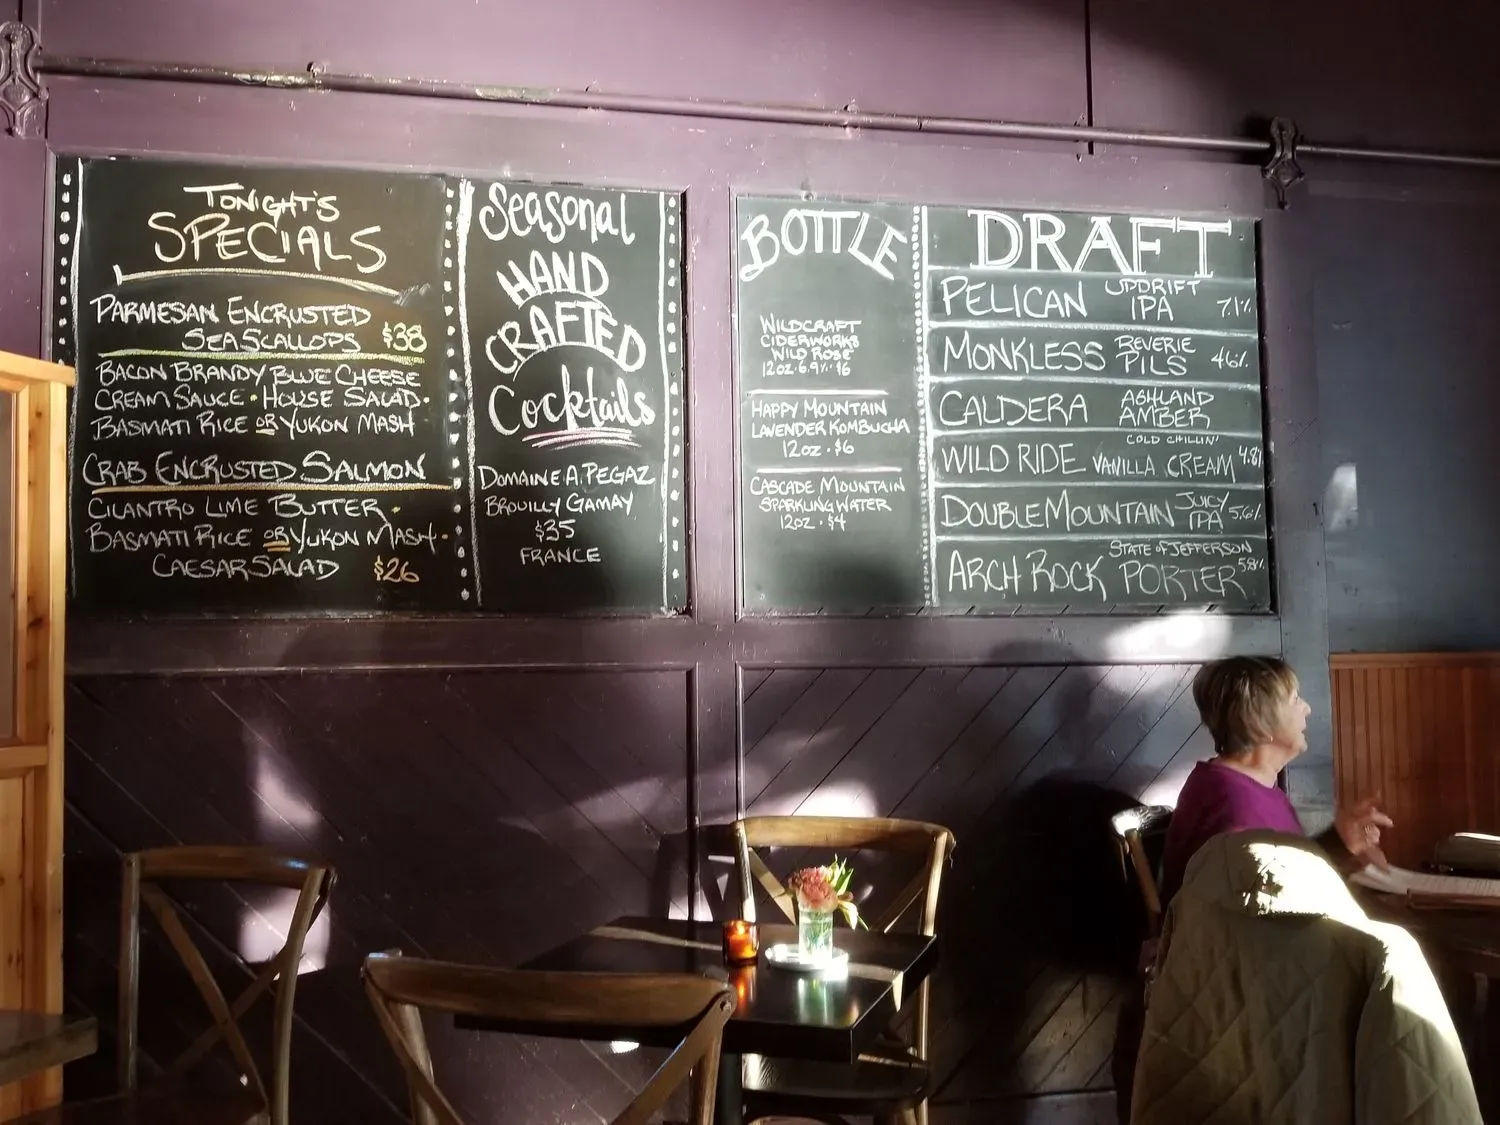 TONIGHT'S
SPECIALS
PARMESAN ENCRUSTED
SEA SCALLOPS $38
BACON BRANDY BLUE CHEESE
CREAM SAUCE · HOUSE SALAD ·
BASMATI RICE OR YUKON MASH
CRAB ENCRUSTED SALMON
CILANTRO LIME BUTTER ·
BASMATI RICE OR YUKON MASH ·
CAESAR SALAD $26
Seasonal
HAND
CRAFTED
Cocktails
DOMAINE A. PEGAZ
BROUILLY GAMAY
$35
FRANCE
BOTTLE
WILDCRAFT
CIDERWORKS
WILD ROSE
12oz · 6.9% · $6
HAPPY MOUNTAIN
LAVENDER KOMBUCHA
12oz · $6
CASCADE MOUNTAIN
SPARKLING WATER
12oz · $4
DRAFT
PELICAN UPDRIFT IPA 7.1%
MONKLESS REVERIE PILS 4.6%
CALDERA ASHLAND AMBER
WILD RIDE COLD CHILLIN' VANILLA CREAM 4.8%
DOUBLE MOUNTAIN JUICY IPA 5.6%
ARCH ROCK STATE OF JEFFERSON PORTER 5.8%